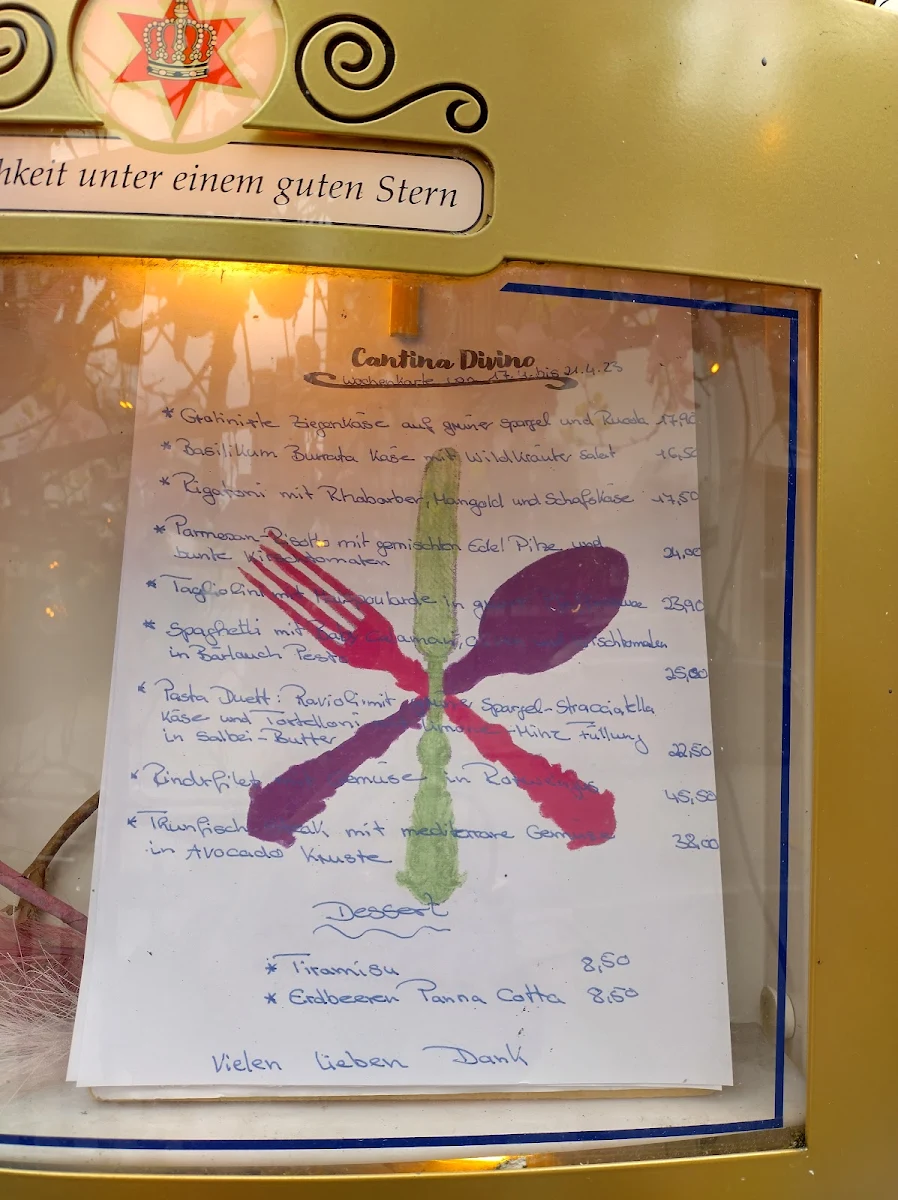 hkeit unter einem guten Stern
Cantina Divino
Wochenkarte 17.4. bis 21.4.23
* Gratinirte Ziegenkäse auf grüner Spargel und Rucola 17,90
* Basilikum Burrata Käse mit Wildkräuter Salat 16,50
* Rigatoni mit Rhabarber, Mangold und Schafskäse 17,50
* Parmesan-Risotto mit gemischten Edel Pilze und
bunte Kirschtomaten 24,00
* Tagliolini mit in 23,90
* Spaghetti mit Baby Calamari,
in Bärlauch Pesto 25,00
* Pasta Duett: Ravioli mit grüne Spargel-Stracciatella
Käse und Tortelloni mit Limone-Minz Füllung
in Salbei-Butter 22,50
* Rindsfilet Gemüse in 45,50
* Thunfisch Steak mit mediterrane Gemüse 38,00
in Avocado Kruste
Dessert
* Tiramisu 8,50
* Erdbeeren Panna Cotta 8,50
Vielen lieben Dank